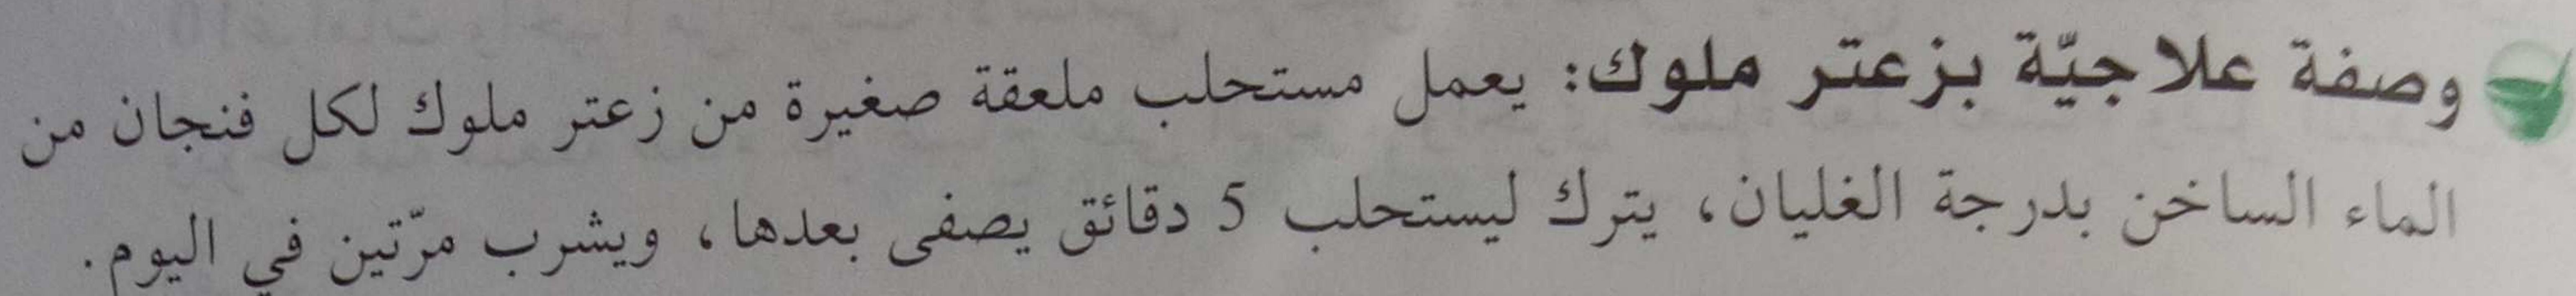 وصفة علاجيّة بزعتر ملوك: يعمل مستحلب ملعقة صغيرة من زعتر ملوك لكل فنجان من
الماء الساخن بدرجة الغليان، يترك ليستحلب 5 دقائق يصفى بعدها، ويشرب مرّتين في اليوم.